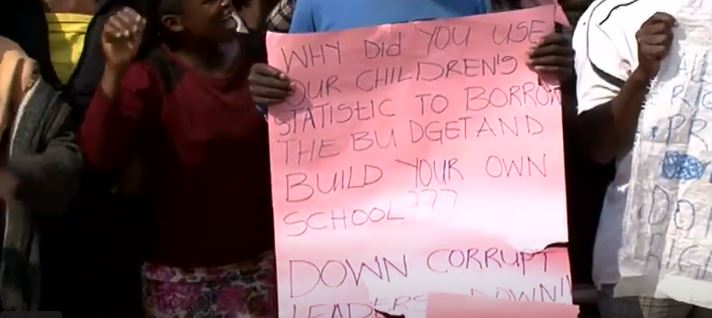 WHY DID YOU USE
OUR CHILDREN'S
STATISTIC TO BORROW
THE BUDGET AND
BUILD YOUR OWN
SCHOOL???
DOWN CORRUPT
LEADERS DOWN!!
RIG
PR
DO